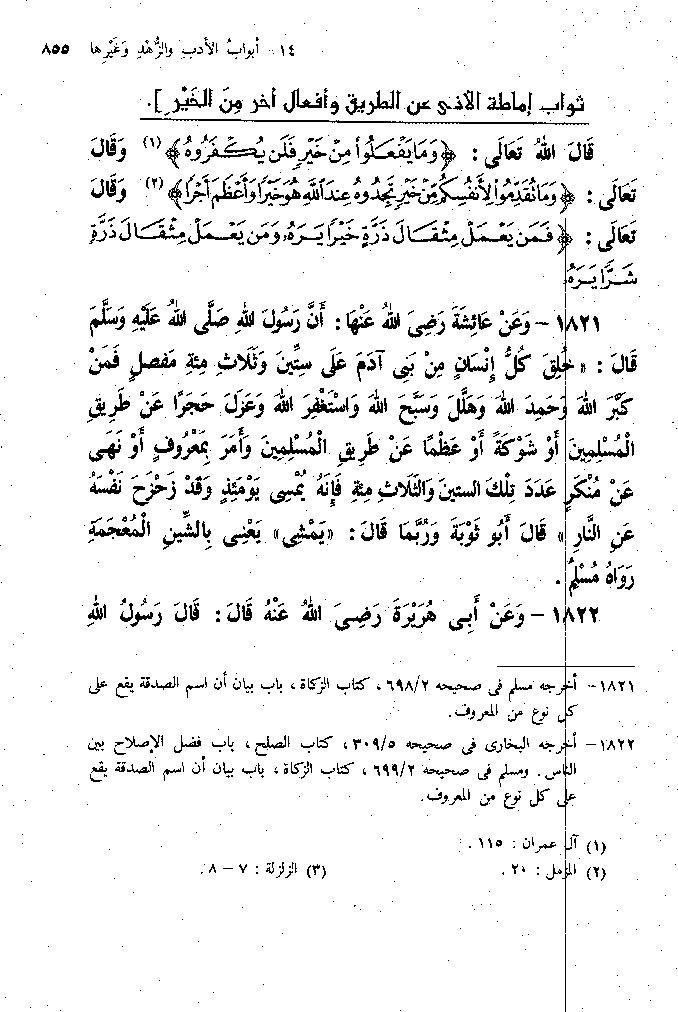 ١٤ - أبوابُ الأدبِ والزُّهْدِ وَغَيْرِها ٨٥٥
ثواب إماطة الأذى عن الطريق وأفعال أخر مِنَ الخَيْرِ ].
قَالَ اللهُ تَعَالَى : ﴿ وَمَا يَفْعَلُوا مِنْ خَيْرٍ فَلَن يُكْفَرُوهُ ﴾ (١) وَقَالَ
تَعَالَى : ﴿ وَمَا تُقَدِّمُوا لِأَنفُسِكُم مِّنْ خَيْرٍ تَجِدُوهُ عِندَ اللَّهِ هُوَ خَيْرًا وَأَعْظَمَ أَجْرًا ﴾ (٢) وَقَالَ
تَعَالَى : ﴿ فَمَن يَعْمَلْ مِثْقَالَ ذَرَّةٍ خَيْرًا يَرَهُ، وَمَن يَعْمَلْ مِثْقَالَ ذَرَّةٍ
شَرًّا يَرَهُ
١٨٢١ - وَعَنْ عَائِشَةَ رَضِىَ اللهُ عَنْهَا : أَنَّ رَسُولَ اللهِ صَلَّى اللهُ عَلَيْهِ وَسَلَّمَ
قَالَ : « خُلِقَ كُلُّ إِنْسَانٍ مِنْ بَنِى آدَمَ عَلَى سِتِّينَ وَثَلَاثِ مِئَةِ مَفْصِلٍ فَمَنْ
كَبَّرَ اللهَ وَحَمِدَ اللهَ وَهَلَّلَ وَسَبَّحَ اللهَ وَاسْتَغْفَرَ اللهَ وَعَزَلَ حَجَرًا عَنْ طَرِيقِ
الْمُسْلِمِينَ أَوْ شَوْكَةً أَوْ عَظْمًا عَنْ طَرِيقِ الْمُسْلِمِينَ وَأَمَرَ بِمَعْرُوفٍ أَوْ نَهَى
عَنْ مُنْكَرٍ عَدَدَ تِلْكَ الستينَ وَالثَّلَاثِ مِئَةِ فَإِنَّهُ يُمْسِى يَوْمَئِذٍ وَقَدْ زَحْزَحَ نَفْسَهُ
عَنِ النَّارِ » قَالَ أَبُو تَوْبَةَ وَرُبَّمَا قَالَ : « يَمْشِى » يَعْنِى بِالشِّينِ الْمُعْجَمَةِ
رَوَاهُ مُسْلِمٌ .
١٨٢٢ - وَعَنْ أَبِى هُرَيْرَةَ رَضِىَ اللهُ عَنْهُ قَالَ : قَالَ رَسُولُ اللهِ
١٨٢١ - أخرجه مسلم فى صحيحه ٦٩٨/٢ ، كتاب الزكاة ، باب بيان أن اسم الصدقة يقع على
كل نوع من المعروف.
١٨٢٢ - أخرجه البخارى فى صحيحه ٣٠٩/٥ ، كتاب الصلح ، باب فضل الإصلاح بين
الناس . ومسلم فى صحيحه ٦٩٩/٢ ، كتاب الزكاة ، باب بيان أن اسم الصدقة يقع
على كل نوع من المعروف.
(١) آل عمران : ١١٥ .
(٢) المزمل : ٢٠ . (٣) الزلزلة : ٧ - ٨ .